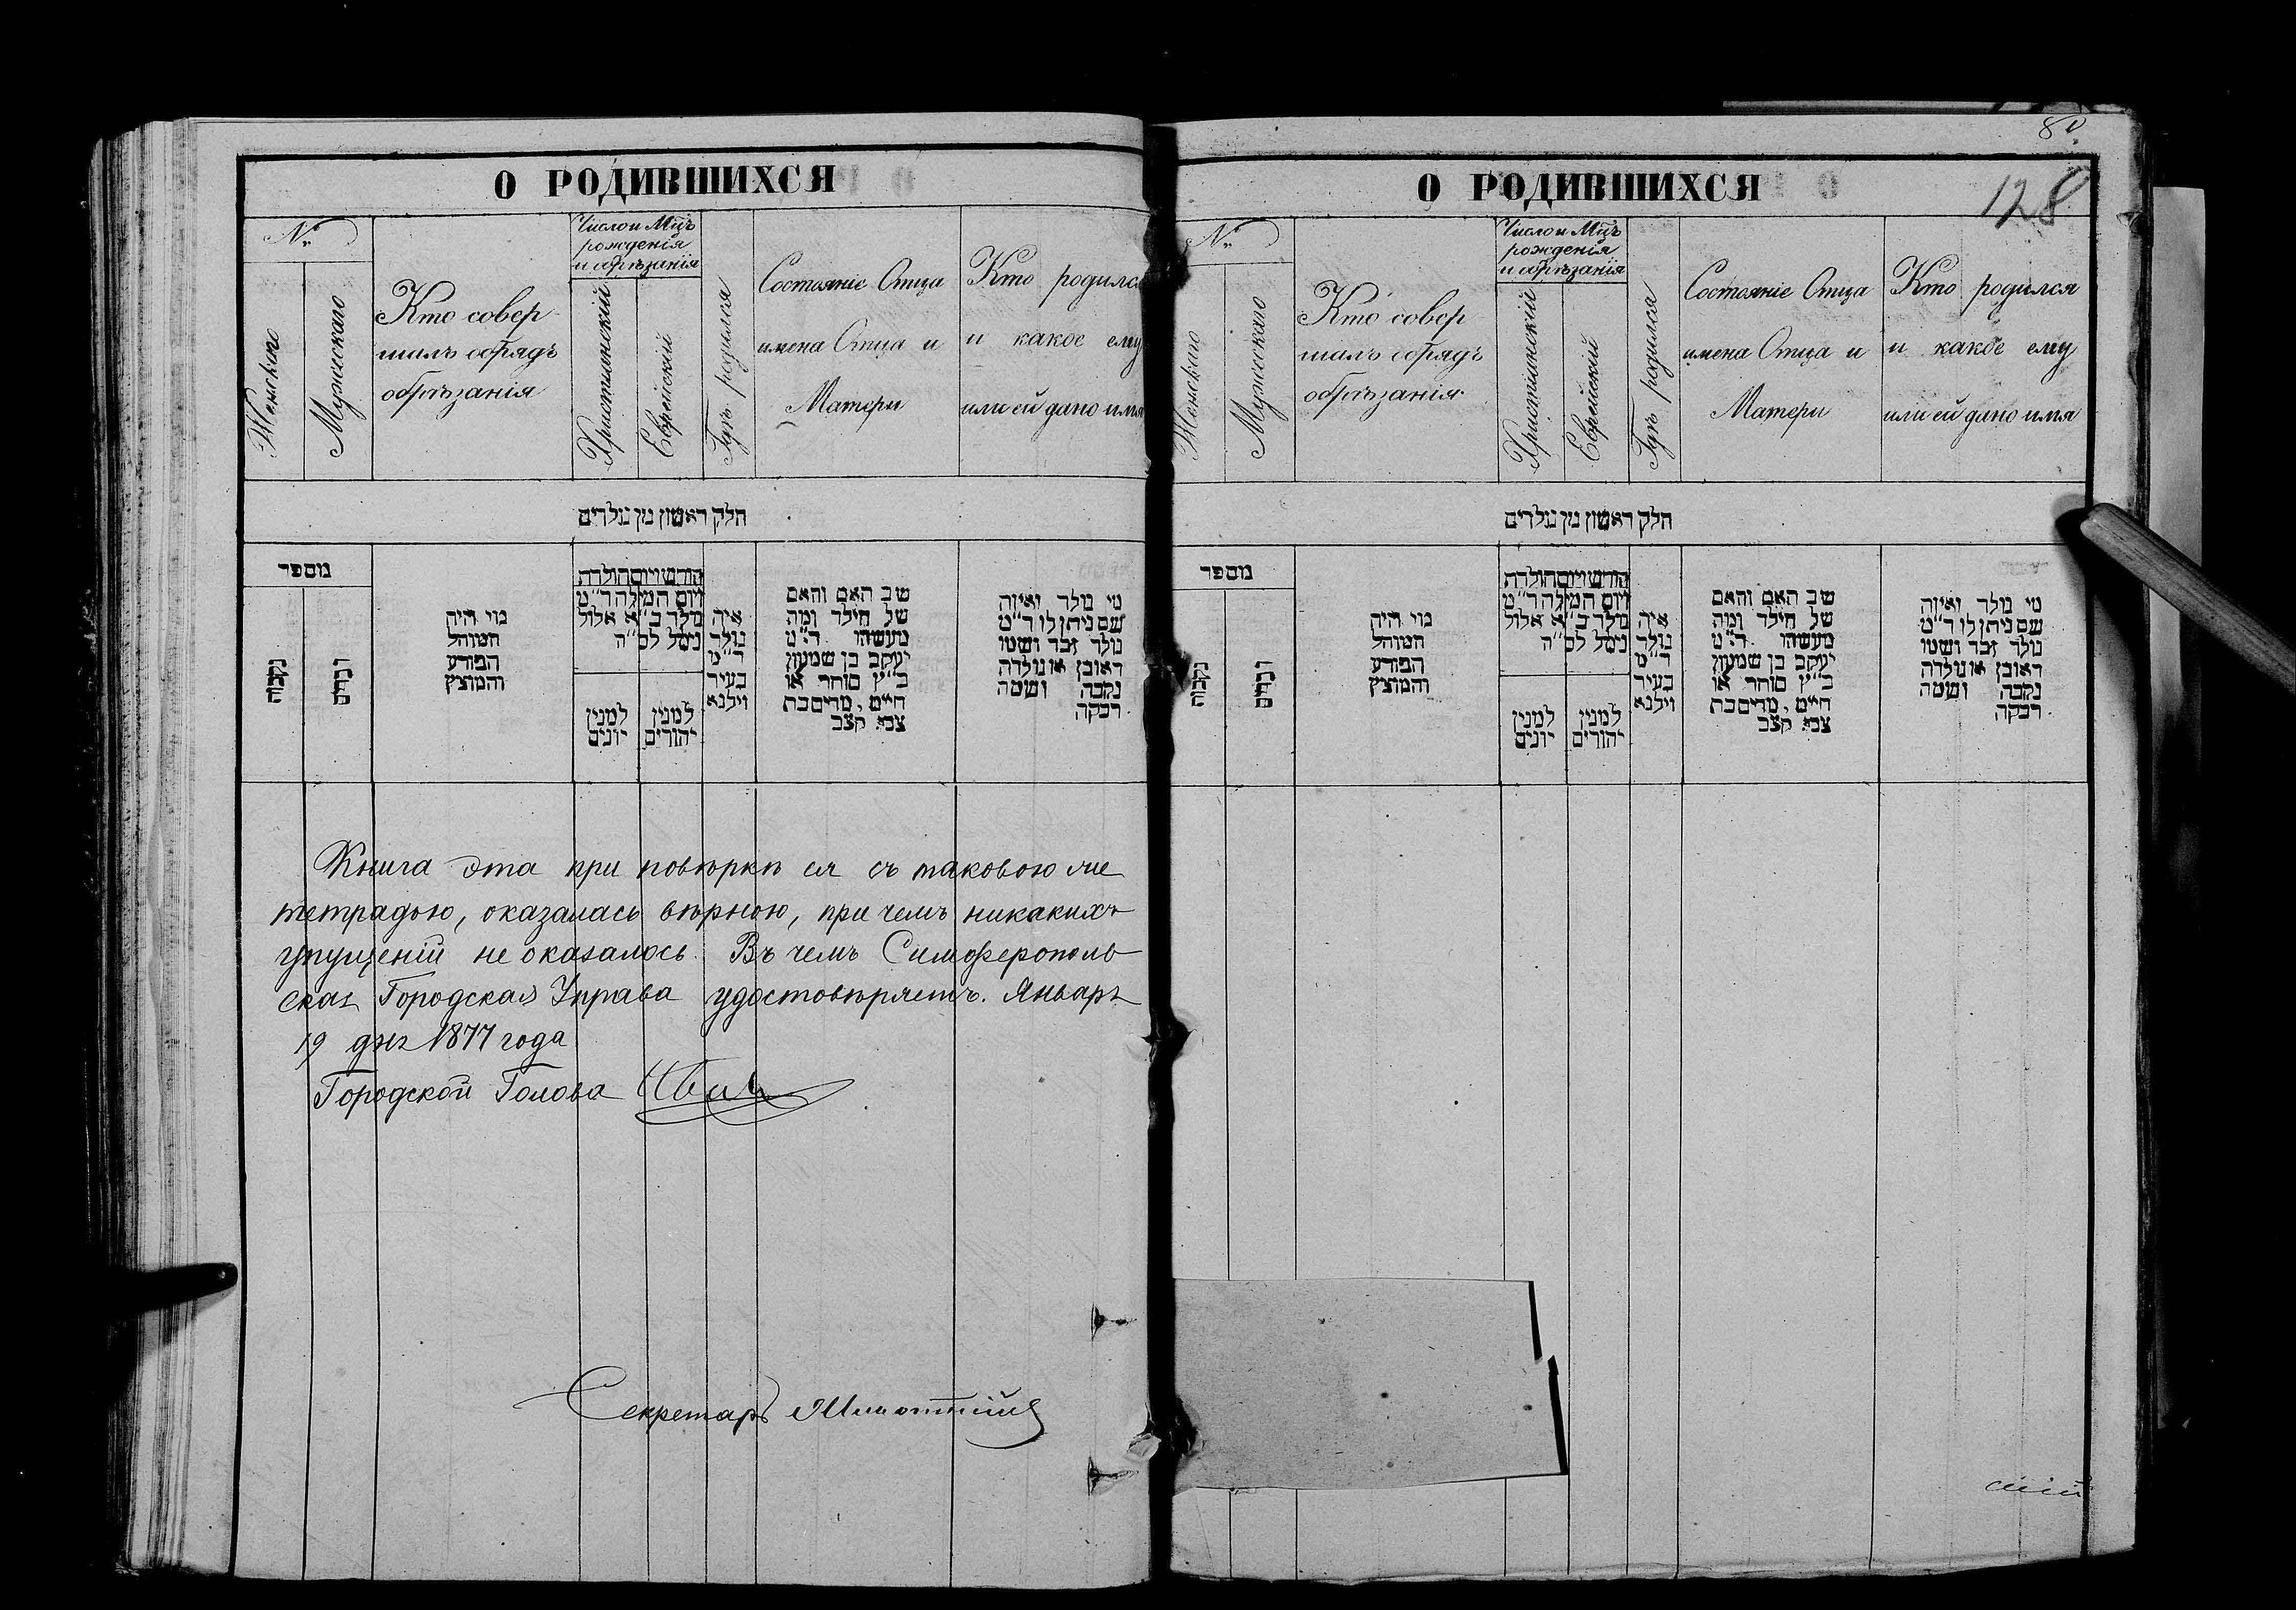 О РОДИВШИХСЯ
№
Женскаго
Мужескаго
Кто совер
шалъ обрядъ
обрѣзанія
Число и Мѣцъ
рожденія
и обрѣзанія
Христіанскій
Еврейскій
Гдѣ родился
Состояніе Отца
имена Отца и
Матери
Кто родился
и какое ему
или ей дано имя
חלק ראשון מן נולדים
מספר
נקבות
זכרים
מי היה
המוהל
הפורע
והמוצץ
חודש ויום הולדת
ויום המילה ד"מ
נולד ב"א אלול
נימל לס"ה
למנין
יונים
למנין
יהודים
איה
נולד
ד"מ
בעיר
וילנא
שב האם והאם
של הילד ומה
מעשהו ד"מ
יעקב בן שמעון
כ"ץ סוחר או
חייט, מרים בת
צבי קצב
מי נולד ואיזה
שם ניתן לו ד"מ
נולד זכר ושמו
ראובן או נולדה
נקבה ושמה
רבקה
Книга эта при повѣркѣ ея съ таковою же
тетрадью, оказалась вѣрною, при чемъ никакихъ
упущеній не оказалось. Въ чемъ Симферополь
ская Городская Управа удостовѣряетъ. Январь
19 дня 1877 года
Городской Голова
Секретарь
80
128
О РОДИВШИХСЯ
№
Женскаго
Мужескаго
Кто совер
шалъ обрядъ
обрѣзанія
Число и Мѣцъ
рожденія
и обрѣзанія
Христіанскій
Еврейскій
Гдѣ родился
Состояніе Отца
имена Отца и
Матери
Кто родился
и какое ему
или ей дано имя
חלק ראשון מן נולדים
מספר
נקבות
זכרים
מי היה
המוהל
הפורע
והמוצץ
חודש ויום הולדת
ויום המילה ד"מ
נולד ב"א אלול
נימל לס"ה
למנין
יונים
למנין
יהודים
איה
נולד
ד"מ
בעיר
וילנא
שב האם והאם
של הילד ומה
מעשהו ד"מ
יעקב בן שמעון
כ"ץ סוחר או
חייט, מרים בת
צבי קצב
מי נולד ואיזה
שם ניתן לו ד"מ
נולד זכר ושמו
ראובן או נולדה
נקבה ושמה
רבקה